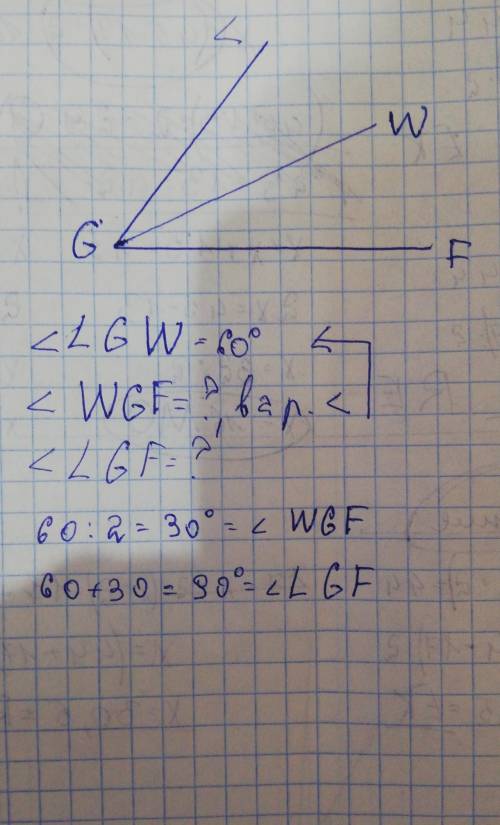 L
W
G
F
<LGW=60°
<WGF=?, в 2 р. <
<LGF=?
60:2=30°=< WGF
60+30=90°=<LGF